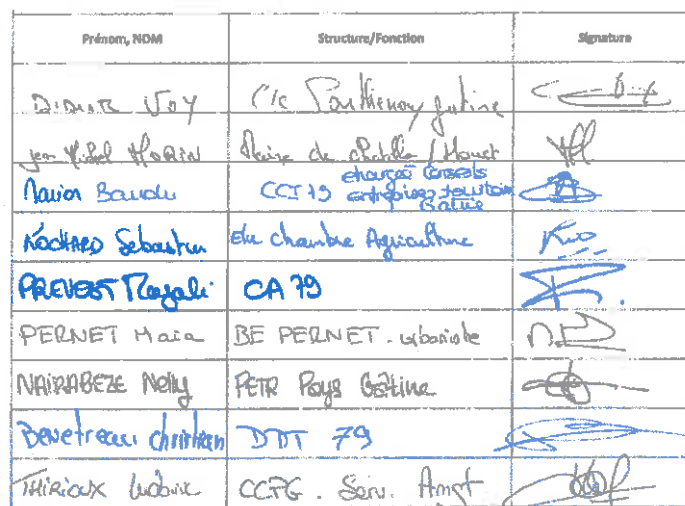 Prénom, NOM Structure/Fonction Signature
DIDIER VOY C/c Parthenay gatine
Jean Michel MORIN Maire de Chatillon / Thouet
Marion Baudu CCI 79 chargée Conseils entreprises territoire Gatine
ROCHARD Sebastien Elu chambre Agriculture
PREVOST Magali CA 79
PERNET Maia BE PERNET - urbaniste
NAIRABEZE Nelly PETR Pays Gâtine
Benetreau christian DDT 79
THIRIOUX Ludovic CCPG . Serv. Amgt